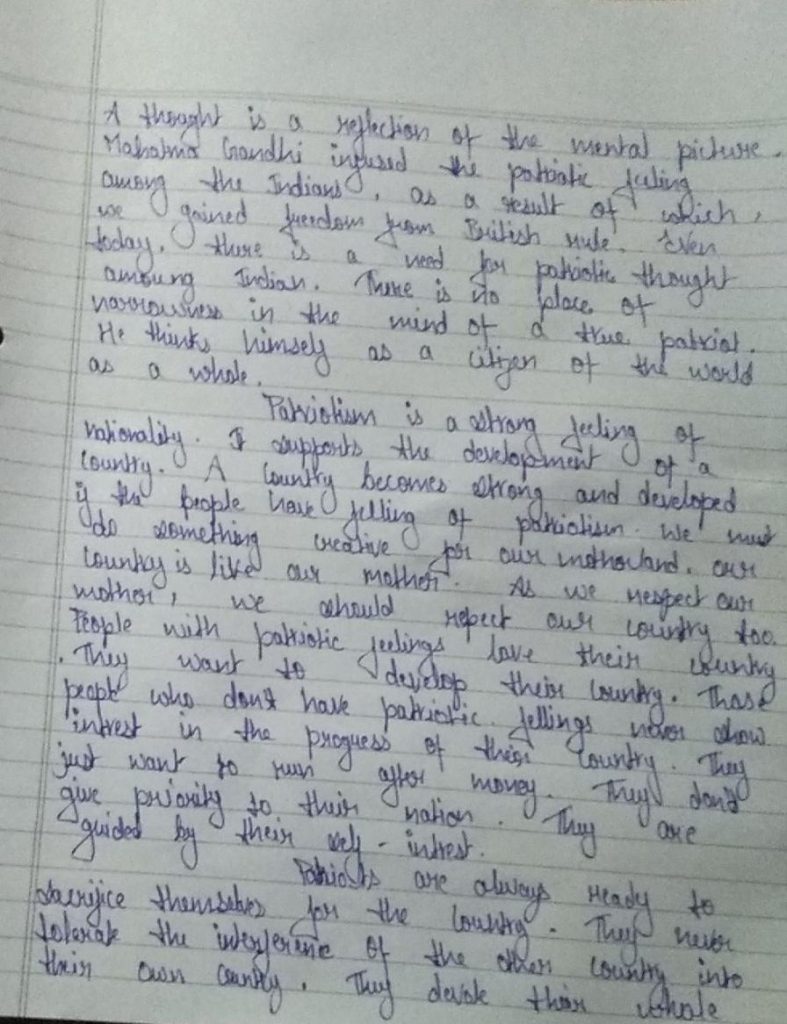 A thought is a reflection of the mental picture.
Mahatma Gandhi infused the patriotic feeling
among the Indians, as a result of which,
we gained freedom from British rule. Even
today, there is a need for patriotic thought
amoung Indian. There is no place of
narrowness in the mind of a true patriot.
He thinks himself as a citizen of the world
as a whole.
Patriotism is a strong feeling of
nationality. It supports the development of a
country. A country becomes strong and developed
if the people have felling of patriotism. We must
do something creative for our motherland. our
country is like our mother. As we respect our
mother, we should repect our country too.
People with patriotic feelings love their country
. They want to develop their country. Those
people who don't have patriotic fellings never show
intrest in the progress of their country. They
just want to run after money. They don't
give priority to their nation. They are
guided by their self-intrest.
Patriots are always ready to
sacrifice themselves for the country. They never
tolerate the interference of the other country into
their own country. They devote their whole